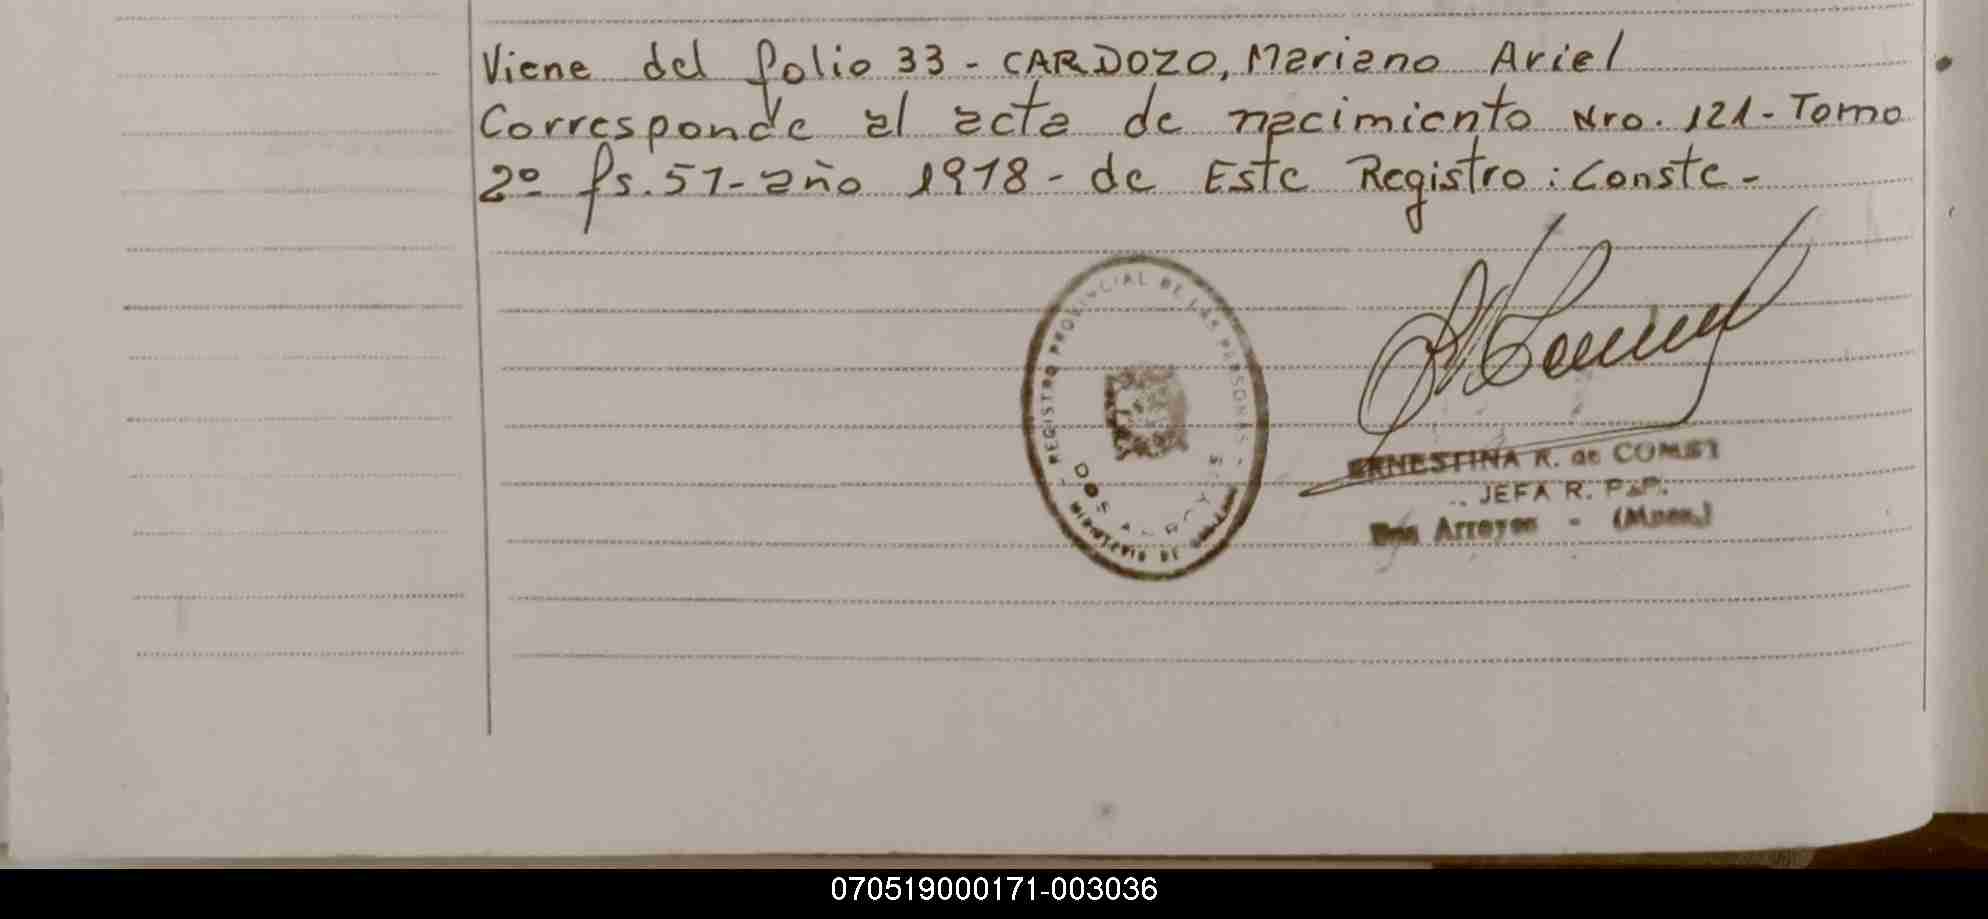 Viene del folio 33 - CARDOZO, Mariano Ariel
Corresponde al acta de nacimiento Nro. 121 - Tomo
2º fs. 51 - año 1978 - de Este Registro: Conste -
REGISTRO PROVINCIAL DE LAS PERSONAS
DOS ARROYOS
MINISTERIO DE GOBIERNO
ERNESTINA R. de
JEFA R. P. P.
Dos Arroyos - (Mnes.)
070519000171-003036